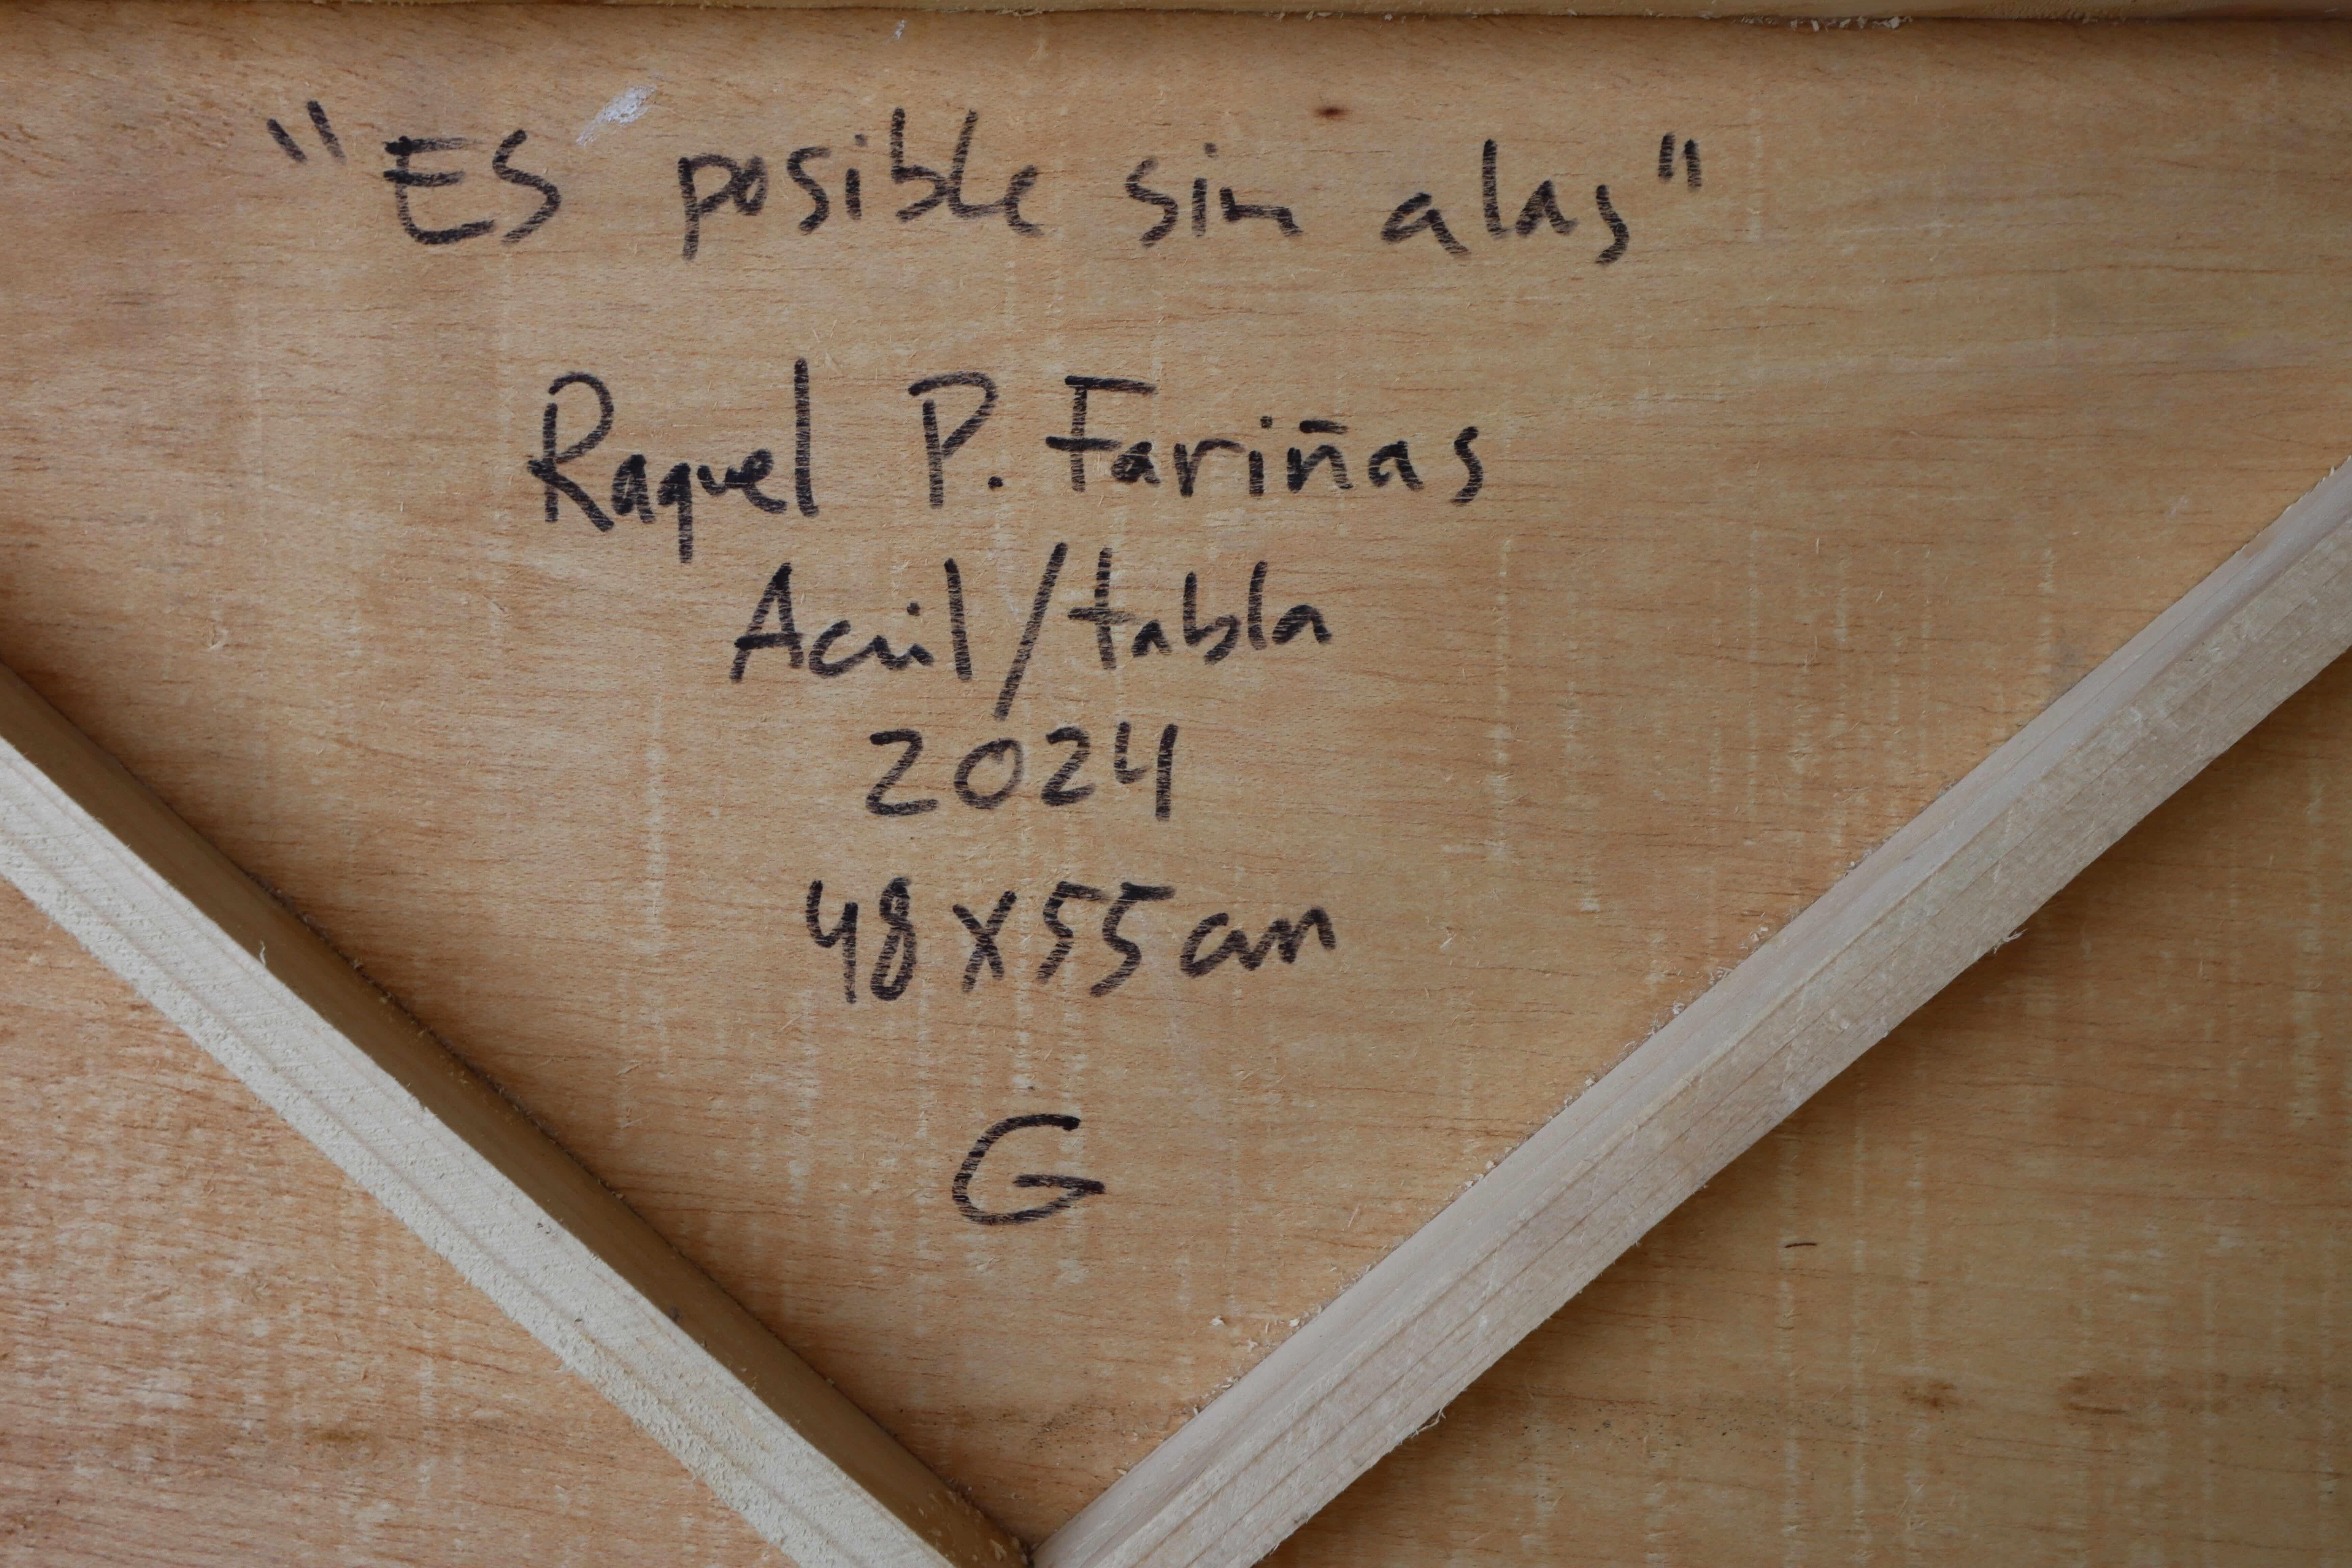 "ES posible sin alas"
Raquel P. Fariñas
Acril/tabla
2024
48x55cm
G